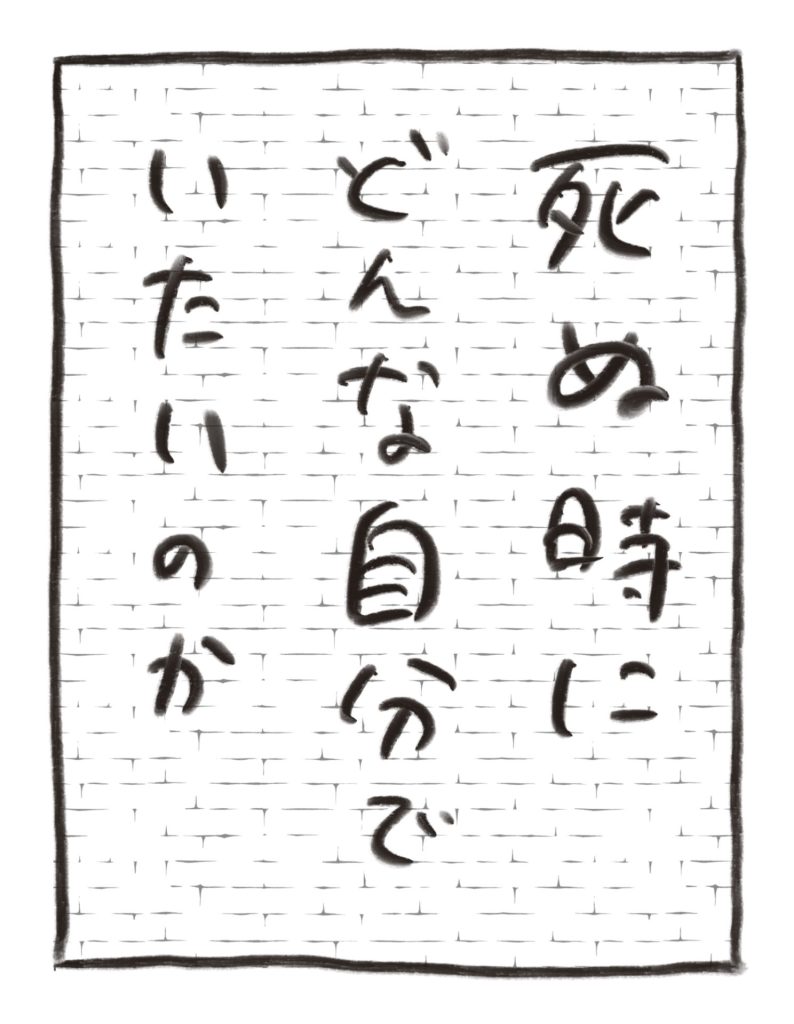 死ぬ時に
どんな自分で
いたいのか